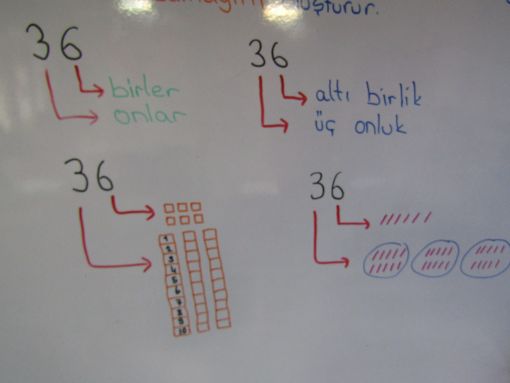 36
birler
onlar
36
altı birlik
üç onluk
36
1
2
3
4
5
6
7
8
9
10
36